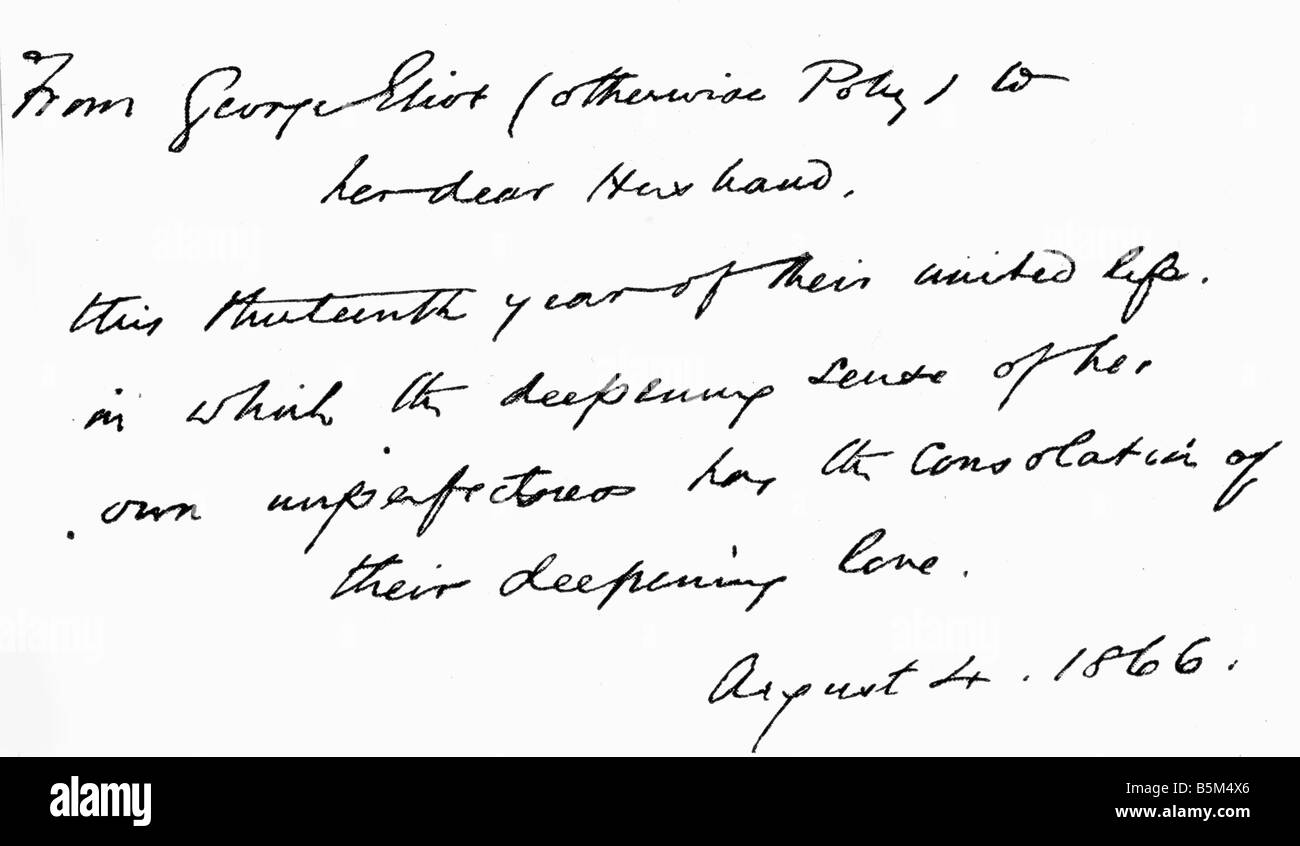 From George Eliot (otherwise Polly) to
her dear Husband,
this thirteenth year of their united life,
in which the deepening sense of her
own imperfectness has the consolation of
their deepening love.
August 4. 1866.
alamy
Image ID: B5M4X6
www.alamy.com